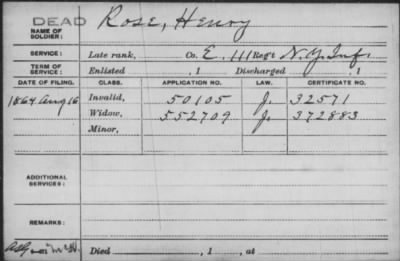 DEAD
NAME OF SOLDIER: Rose, Henry
SERVICE: Late rank, Co. E, 111 Reg't N.Y. Inf.
TERM OF SERVICE: Enlisted , 1 Discharged , 1
DATE OF FILING. CLASS. APPLICATION NO. LAW. CERTIFICATE NO.
1864 Aug 16 Invalid, 50105 J. 32571
Widow, 552709 J. 372883
Minor,
ADDITIONAL SERVICES:
REMARKS:
Died , 1 , at